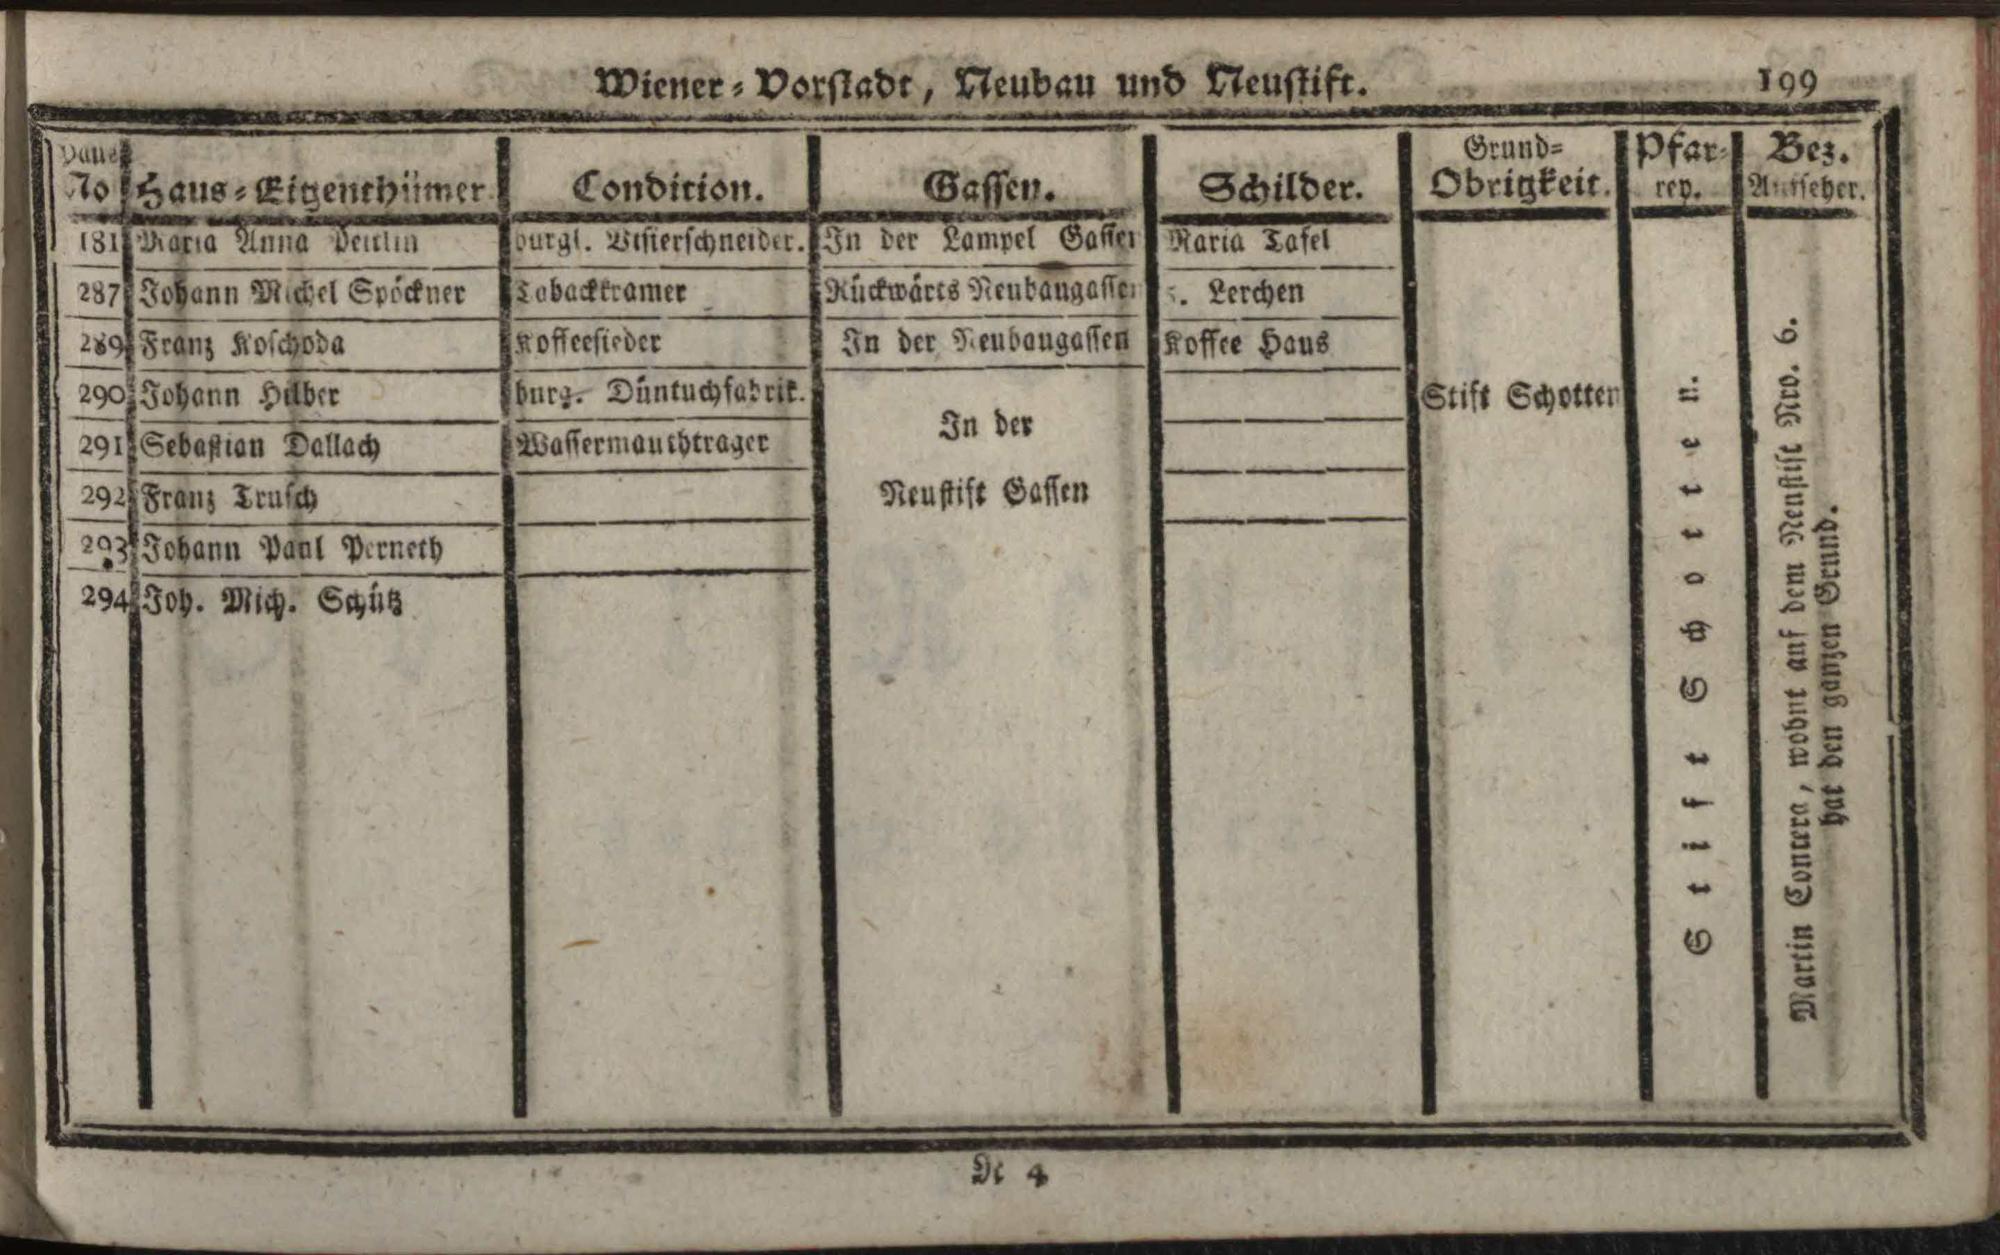 Wiener-Vorstadt, Neubau und Neustift. 199
Haus No Haus-Eigenthümer Condition. Gassen. Schilder. Grund-Obrigkeit. Pfar-rey. Bez. Aufseher.
181 Maria Anna burgl. Visierschneider. In der Lampel Gassen Maria Tafel
287 Johann Michel Spöckner Tabackkramer Rückwärts Neubaugassen s. Lerchen
289 Franz Koschoda Koffeesieder In der Neubaugassen Koffee Haus
290 Johann Hilber burg. Düntuchfabrik.
291 Sebastian Dallach Wassermauthtrager
292 Franz Trusch
293 Johann Paul Perneth
294 Joh. Mich. Schütz
In der
Neustift Gassen
Stift Schotten
Stift Schotten.
Martin Contera, wohnt auf dem Neustift Nro. 6.
hat den ganzen Grund.
N 4